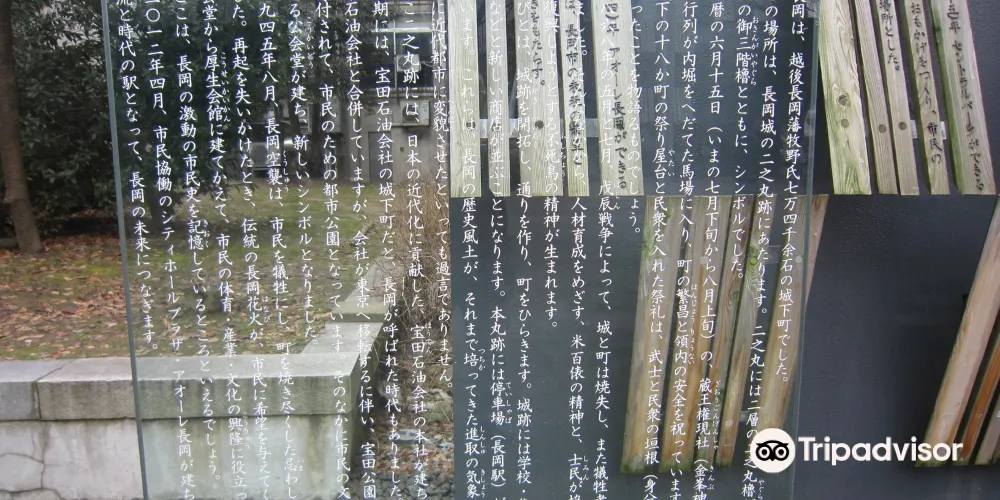 岡は、越後長岡藩牧野氏七万四千余石の城下町でした。
の場所は、長岡城の二之丸跡にあたります。二之丸には二層の
之丸櫓、
の御三階櫓とともに、シンボルでした。
暦の六月十五日（いまの七月下旬から八月上旬）の、蔵王権現社（金峯神
行列が内堀をへだてた馬場に入り、町の繁昌と領内の安全を祝っています
下の十八か町の祭り屋台と民衆を入れた祭礼は、武士と民衆の垣根（身分
ったことを物語るものでしょう。
年の五月と七月、戊辰戦争によって、城と町は焼失し、また犠牲者
から、人材育成をめざす、米百俵の精神と、士民が
復興しようとする不死鳥の精神が生まれます。
びとは、城跡を開拓し、通りを作り、町をひらきます。城跡には学校・
などと新しい商店が並ぶことになります。本丸跡には停車場（長岡駅）が
います。これらは、長岡の歴史風土が、それまで培ってきた進取の気象
に近代都市に変貌させたといっても過言でありません。
ここ二之丸跡には、日本の近代化に貢献した、宝田石油会社の本社が建ち
期には、宝田石油会社の城下町だと、長岡が呼ばれた時代もありました
石油会社と合併していますが、会社が東京へ移転するに伴い、宝田公園
付されて、市民のための都市公園となっています。そのなかに市民の文
る公会堂が建ち、新しいシンボルとなりました
九四五年八月、長岡空襲は、市民を犠牲にし、町を焼き尽くした忌わし
た。再起を失いかけたとき、伝統の長岡花火が、市民に希望を与えてく
堂から厚生会館に建てかえて、市民の体育、産業・文化の興隆に役立っ
こは、長岡の激動の市民史を記憶しているところといえるでしょう。
二〇一二年四月、市民協働のシティホールプラザ アオーレ長岡が建ち
流と時代の駅となって、長岡の未来につなぎます。
アオーレ長岡ができる
長岡市の
をもたらす。
場所とした。
おもかげをつくり、市民の
年 セントラルパークができる
Tripadvisor